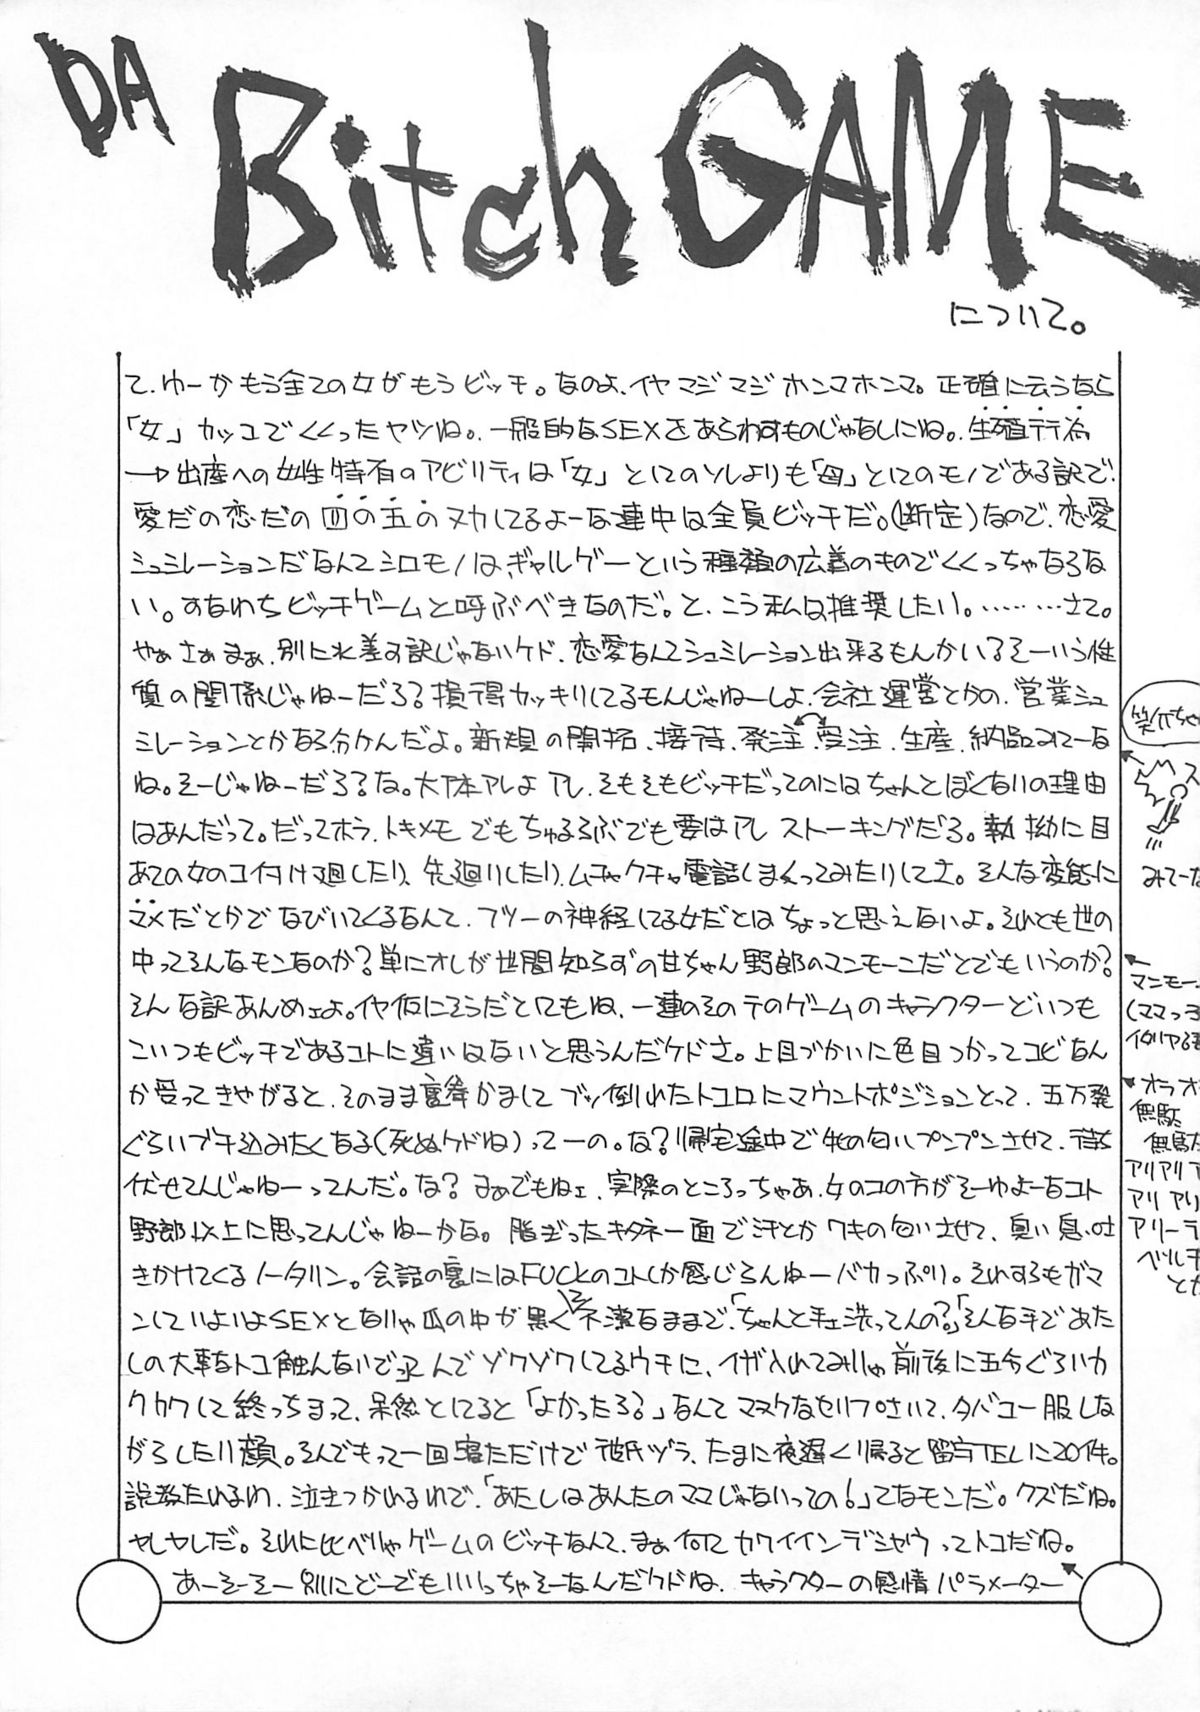 DA Bitch GAME
について。
て、ゆーかもう全ての女がもうビッチ。なのよ、イヤマジマジホンマホンマ。正確に云うなら
「女」カッコでくくったヤツね。一般的なSEXをあらわすものじゃなしにね。生殖行為
→出産への女性特有のアビリティは「女」としてのソレよりも「母」としてのモノである訳で、
愛だの恋だの四の五のヌカしてるよーな連中は全員ビッチだ。(断定)なので、恋愛
シュミレーションだなんてシロモノは、ギャルゲーという種類の広義のものでくくっちゃなるな
い。すなわちビッチゲームと呼ぶべきなのだ。と、こう私は推奨したい。………さて。
やぁさぁまぁ、別に水差す訳じゃないケド、恋愛なんてシュミレーション出来るもんかい?そーいう性
質の関係じゃねーだろ?損得カッキリしてるモンじゃねーしよ、会社運営とかの、営業シュ
ミレーションとかなら分かんだよ。新規の開拓、接待、発注、受注、生産、納品みてーな
ね。そーじゃねーだろ?な。大体アレよアレ、そもそもビッチだってのにはちゃんとぼくないの理由
はあんだって。だってホラ、トキメモでもちゅるるぶでも要はアレ ストーキングだろ。執拗に目
あての女のコ付け廻したり、先廻りしたり、ムチャクチャ電話しまくってみたりしてさ。そんな変態に
マメだとかでなびいてくるなんて、フツーの神経してる女だとはちょっと思えないよ。それとも世の
中ってそんなモンなのか?単にオレが世間知らずの甘ちゃん野郎のマンモーニだとでもいうのか?
そんな訳あんめェよ。イヤ仮にそうだとしてもね、一連のそのテのゲームのキャラクターどいつも
こいつもビッチであるコトに違いはないと思うんだケドさ。上目づかいに色目つかってコビなん
か売ってきやがると、そのまま裏拳かまして ブッ倒れたトコロにマウントポジションとって、五万発
ぐらいブチ込みたくなる(死ぬケドね)ってーの。な?帰宅途中で牝の匂いプンプンさせて、待ち
伏せてんじゃねーってんだ。な?まぁでもねェ、実際のところっちゃあ、女のコの方がそーゆよーなコト
野郎以上に思ってんじゃねーかな。脂ぎったキタネー面で汗とかワキの匂いさせて、臭い息、吐
きかけてくるノータリン。会話の裏にはFUCKのコトしか感じらんねーバカっぷり。それするもガマ
ンしていよいよSEXとなりゃ爪の中が黒く不潔なままで、「ちゃんと手ェ洗ってんの?」「そんな手であた
しの大事なトコ触んないで」ってんでゾクゾクしてるウチに、イザ入れてみりゃ前後に五分ぐらいカ
クカクして終っちまって、呆然としてると「よかったろ?」なんてマヌケなセリフさいて、タバコ一服しな
がらしたり顔。そんでもって一回寝ただけで彼氏ヅラ、たまに夜遅く帰ると留守TELに20件。
説教たれるわ、泣きつかれるわで、「あたしはあんたのママじゃないっての!」てなモンだ。クズだね。
ヤしヤしだ。それに比べりゃゲームのビッチなんて、まぁ何てカワイインデショウってトコだね。
あーそーそー別にどーでもいいっちゃそーなんだケドね、キャラクターの感情パラメーター
みてーな
マンモー
(ママっ子
イタリア
オラオ
無駄
無駄
アリアリア
アリアリ
アリーデ
ベルチ
とか